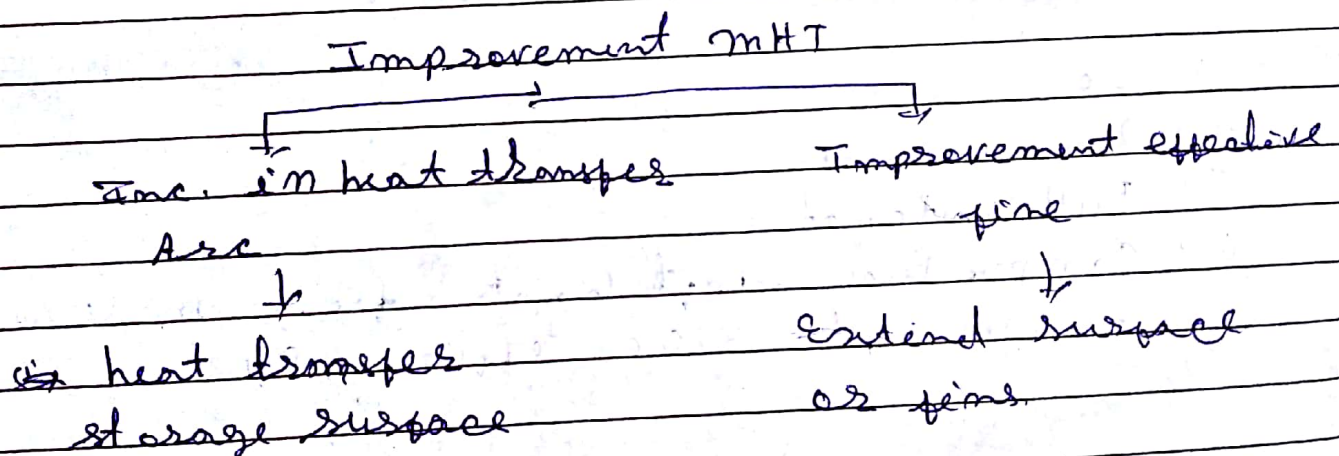 Improvement mHT
Inc. in heat transfer
Arc
heat transfer
storage surface
Improvement effective
fine
Extend surface
or fins.